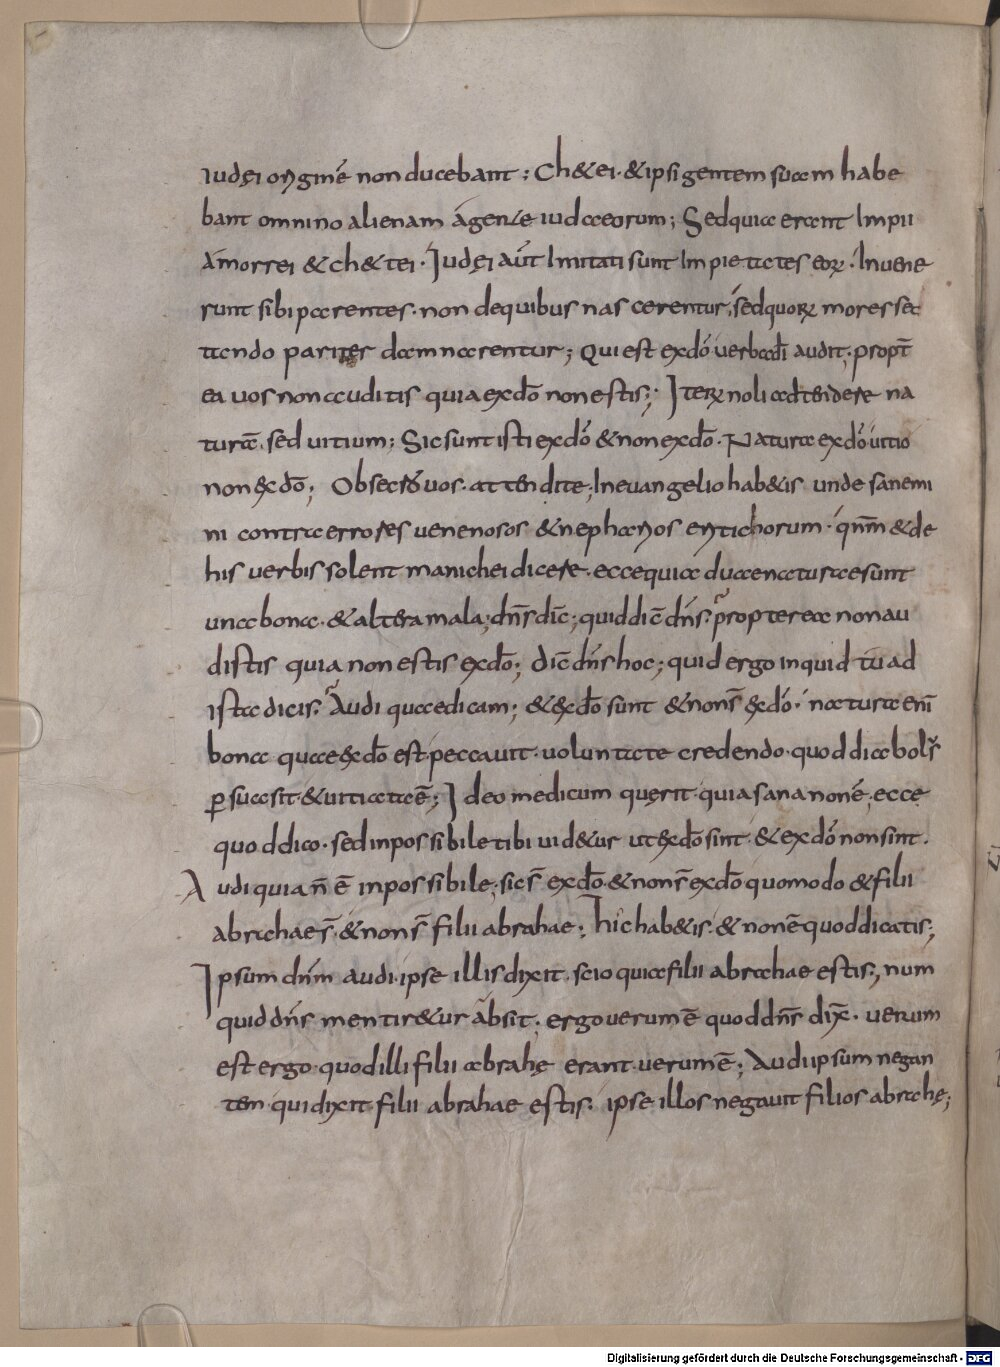 iudęi originē non ducebant; Ch&ei. &ipsi gentem suam habe
bant omnino alienam agente iudaeorum; Sed quia erant impii
amorrei & ch&tei. Iudęi aūt imitati sunt impietates eorꝝ. Inuene
runt sibi parentes. non de quibus nascerentur, sed quorꝝ mores sec
tando pariter damnarentur; Qui est ex dō uerba dī audit; propt̄
ea uos non auditis quia ex dō non estis; Iterꝝ noli adtendere na
turā. sed uitium; Sic sunt isti ex dō & non ex dō. Natura ex dō uitio
non ex dō; Obsecro uos. attendite; In euangelio hab&is unde sanemi
ni contra errores uenenosos & nepharios entichorum. qn̄m & de
his uerbis solent manichei dicere. ecce quia duae naturae sunt
una bona. & altera mala; dn̄s dīc; quid dīc dn̄s. propterea non au
distis quia non estis ex dō; dīc dn̄s hoc; quid ergo inquid tu ad
ista dicis. Audi quae dicam; & ex dō sunt & non s̄ ex dō. natura enī
bona quae ex dō est peccauit. uoluntate credendo. quod diabolꝰ
ꝑsuasit. & uitiata ē; Ideo medicum quęrit. quia sana non ē. ecce
quod dico. sed inpossibile tibi uid&ur ut ex dō sint & ex dō non sint.
Audi quia n̄ ē inpossibile; sic s̄ ex dō. & non s̄ ex dō quomodo & filii
abrahae s̄. & non s̄ filii abrahae; hic hab&is. & non ē quod dicatis;
Ipsum dn̄m audi. ipse illis dixit. scio quia filii abrahae estis; num
quid dn̄s mentir&ur absit. ergo uerum ē quod dn̄s dix̄. uerum
est ergo. quod illi filii abrahę erant. uerum ē; Audi ipsum negan
tem. qui dixit. filii abrahae estis. ipse illos negauit filios abrahę;
Digitalisierung gefördert durch die Deutsche Forschungsgemeinschaft - DFG